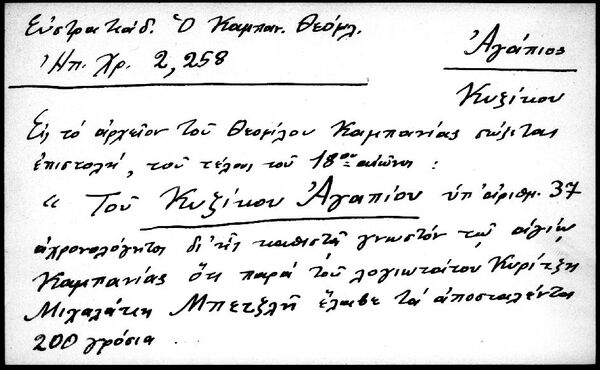 Εὐστρατιάδ. Ὁ Καμπαν. Θεόφιλ.
Ἠπ. Χρ. 2, 258
Ἀγάπιος
Κυζίκου
Εἰς τό ἀρχεῖον τοῦ Θεοφίλου Καμπανίας σώζεται
ἐπιστολή, τοῦ τέλους τοῦ 18ου αἰῶνος :
“ Τοῦ Κυζίκου Ἀγαπίου ὑπ' ἀριθμ. 37
ἀχρονολόγητος δι' ἧς καθιστᾷ γνωστόν τῷ ἁγίῳ
Καμπανίας ὅτι παρά τοῦ λογιωτάτου Κυρίτζη
Μιχαλάκη Μπετζλῆ ἔλαβε τά ἀποσταλέντα
200 γρόσια